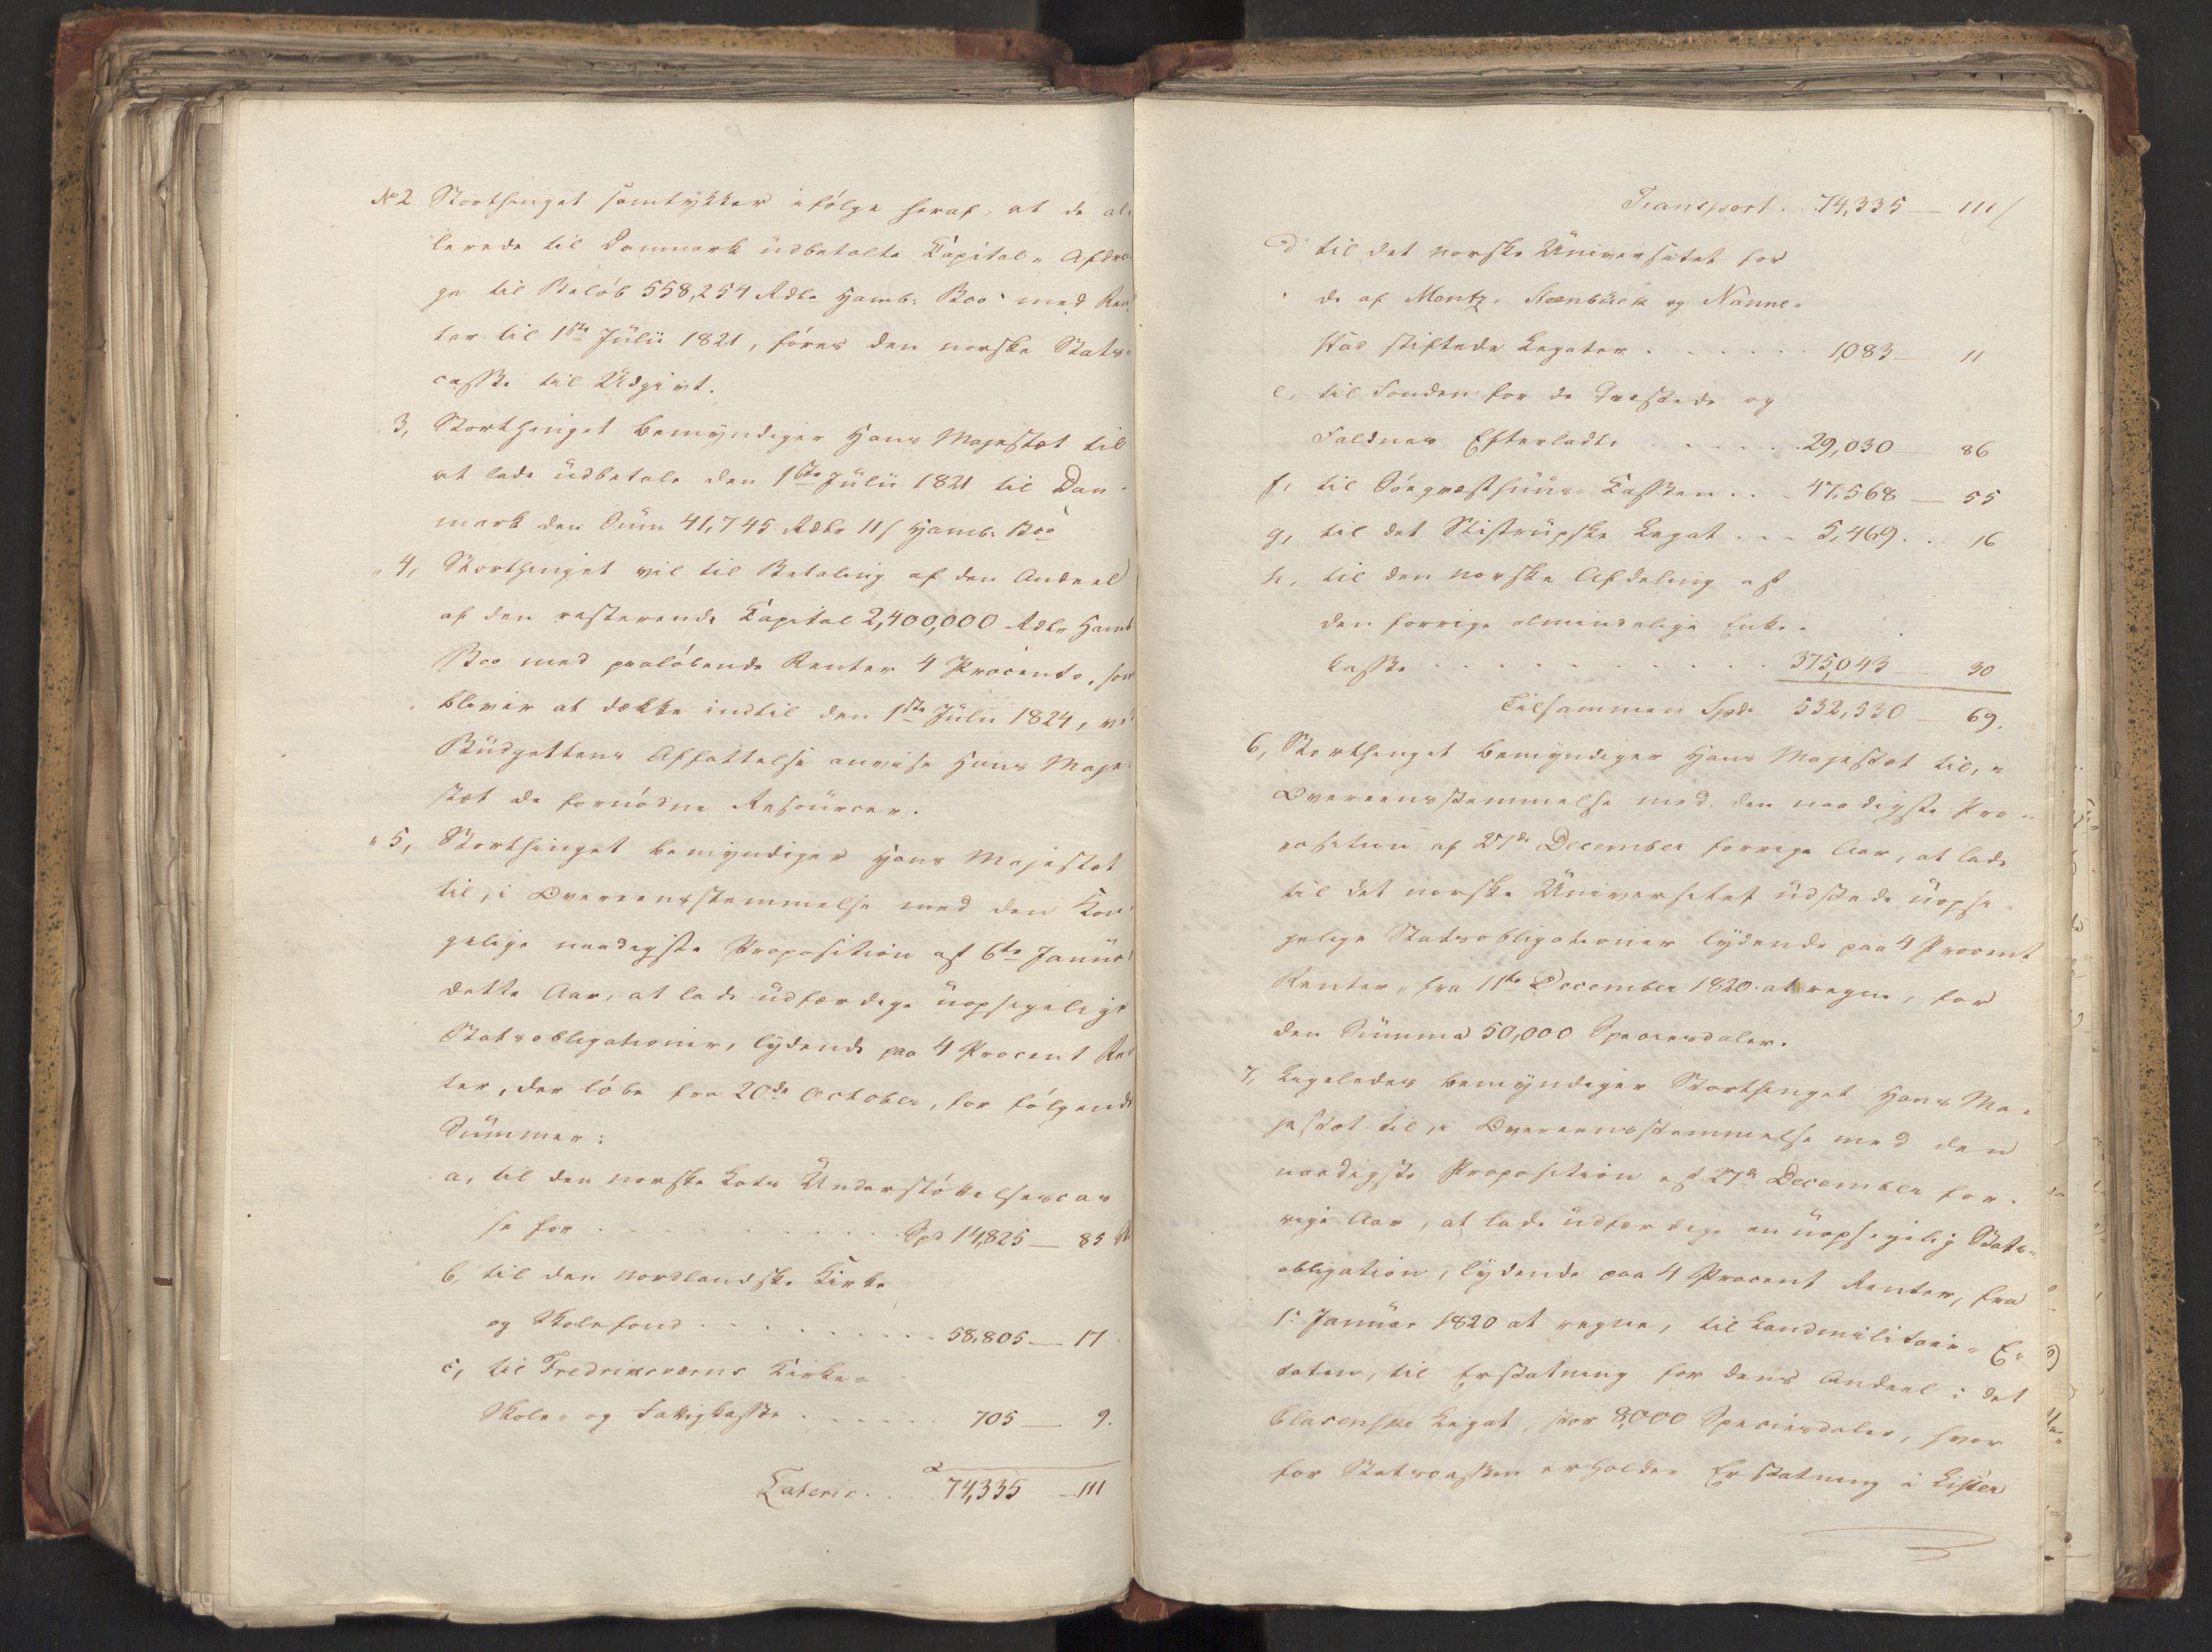 No 2 Storthinget samtykker ifølge heraf, at de al-
lerede til Danmark udbetalte Kapital- Afdra
ge til Beløb 558,254 Rdlr Hamb: Bco med Ren
ter til 1ste Julii 1821, føres den norske Stats-
casse til Udgivt.
3, Storthinget bemyndiger Hans Majestæt til
at lade udbetale den 1ste Julii 1821 til Dan-
mark den Sum 41,745 Rdlr 11 s Hamb: Bco
4, Storthinget vil til Betaling af den Andeel
af den resterende Kapital 2,400,000 Rdlr Hamb
Bco med paaløbende Renter 4 Procento, som
bliver at dække indtil den 1ste Julii 1824, ved
Budgettens Affattelse anvise Hans Maje-
stæt de fornødne Resourcer.
" 5, Storthinget bemyndiger Hans Majestæt
til, i Overeensstemmelse med den Kon-
gelige naadigste Proposition af 6te Januar
dette Aar, at lade udfærdige uopsigelige
Statsobligationer, lydende paa 4 Procent Ren
ter, der løbe fra 20de October, for følgende
Summer:
a, til den norske Lods Understøttelsescas
se for . . . Spd 14,825 — 85 s
b, til den nordlandske Kirke
og Skolefond . . . 58,805 — 17
c, til Fredriksværns Kirke-
Skole- og Fattigkasse . . . 705 — 9.
Lateris . . . 74,335 — 111
Transport . . 74,335 — 111 s
d til det norske Universitet for
de af Mentz, Steenbuck og Nanne-
stad stiftede Legater . . . 1,083 — 11
e, til Fonden for de Qvæstede og
Faldnes Efterladte . . . 29,030 — 86
f, til Søeqvæsthuus Kassen . . . 47,568 — 55
g, til det Stistrupske Legat . . . 5,469 . . 16
h, til den norske Afdeling af
den forrige almindelige Enke-
kasse . . . 375,043 — 30
Tilsammen Spd. 532,530 — 69.
6, Storthinget bemyndiger Hans Majestæt til, i
Overeensstemmelse med den naadigste Pro-
position af 27de December forrige Aar, at lade
til det norske Universitet udstede uopsi
gelige Statsobligationer lydende paa 4 Procent
Renter, fra 11te December 1820 at regne, for
den Summa 50,000 Speciesdaler.
7, Ligeledes bemyndiger Storthinget Hans Ma-
jestæt til, i Overeensstemmelse med den
naadigste Proposition af 27de December for-
rige Aar, at lade udfærdige en uopsigelig Stats-
obligation, lydende paa 4 Procent Renter, fra
1. Januar 1820 at regne, til Landmilitair- E-
taten, til Erstatning for dens Andeel i det
Clasenske Legat, stor 8,000 Speciesdaler, hvor
for Statscassen erholder Erstatning i Lister